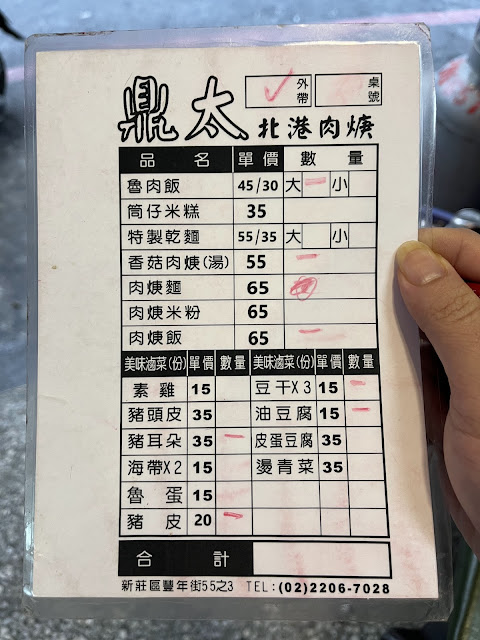 外帶 桌號
鼎太 北港肉焿
品名 單價 數量
魯肉飯 45/30 大 一 小
筒仔米糕 35
特製乾麵 55/35 大 小
香菇肉焿(湯) 55 一
肉焿麵 65
肉焿米粉 65
肉焿飯 65 一
美味滷菜(份) 單價 數量 美味滷菜(份) 單價 數量
素雞 15 豆干X3 15 一
豬頭皮 35 油豆腐 15 一
豬耳朵 35 一 皮蛋豆腐 35
海帶X2 15 燙青菜 35
魯蛋 15
豬皮 20 一
合計
新莊區豐年街55之3 TEL:(02)2206-7028